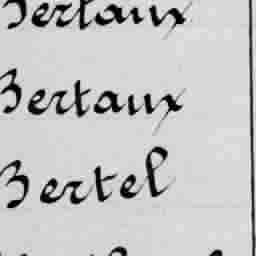 Bertaux
Bertaux
Bertel